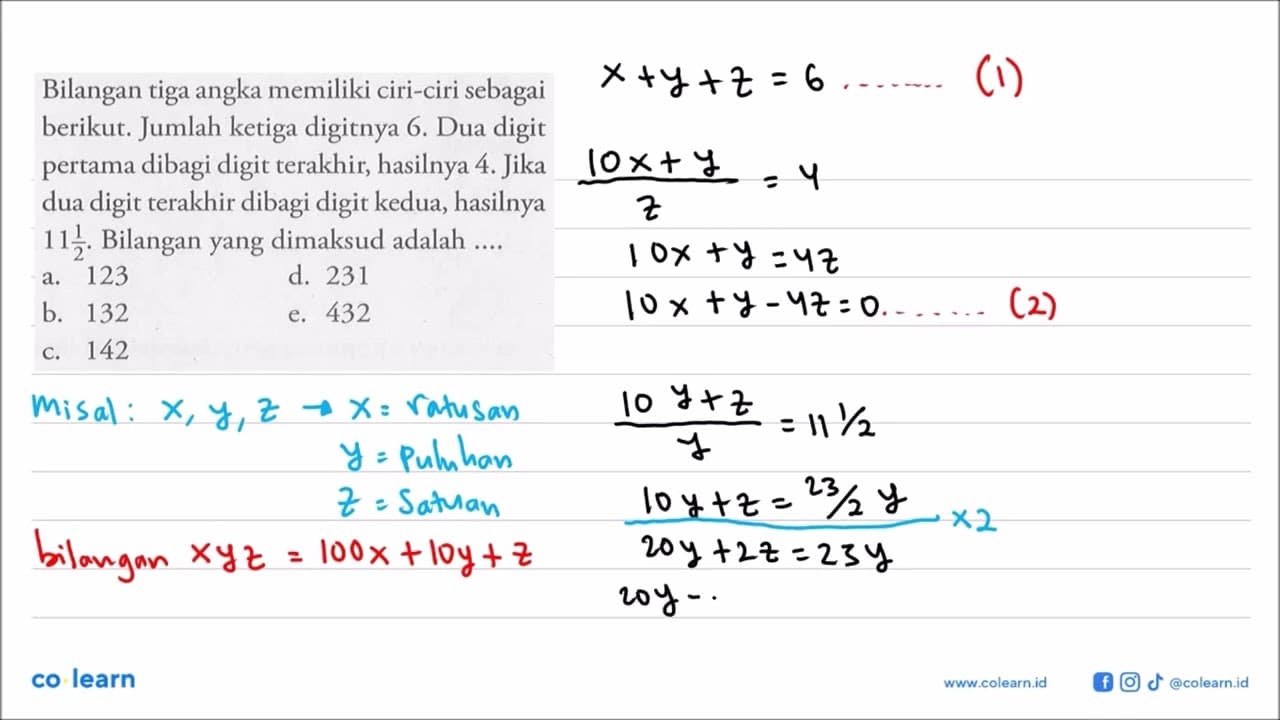 Bilangan tiga angka memiliki ciri-ciri sebagai
berikut. Jumlah ketiga digitnya 6. Dua digit
pertama dibagi digit terakhir, hasilnya 4. Jika
dua digit terakhir dibagi digit kedua, hasilnya
11 1/2. Bilangan yang dimaksud adalah ....
a. 123 d. 231
b. 132 e. 432
c. 142
misal: x, y, z → x = ratusan
y = puluhan
z = Satuan
bilangan xyz = 100x + 10y + z
x + y + z = 6 ........ (1)
(10x + y)/z = 4
10x + y = 4z
10x + y - 4z = 0 ........ (2)
(10y + z)/y = 11 1/2
10y + z = 23/2 y ×2
20y + 2z = 23y
20y - .
co learn
www.colearn.id @colearn.id